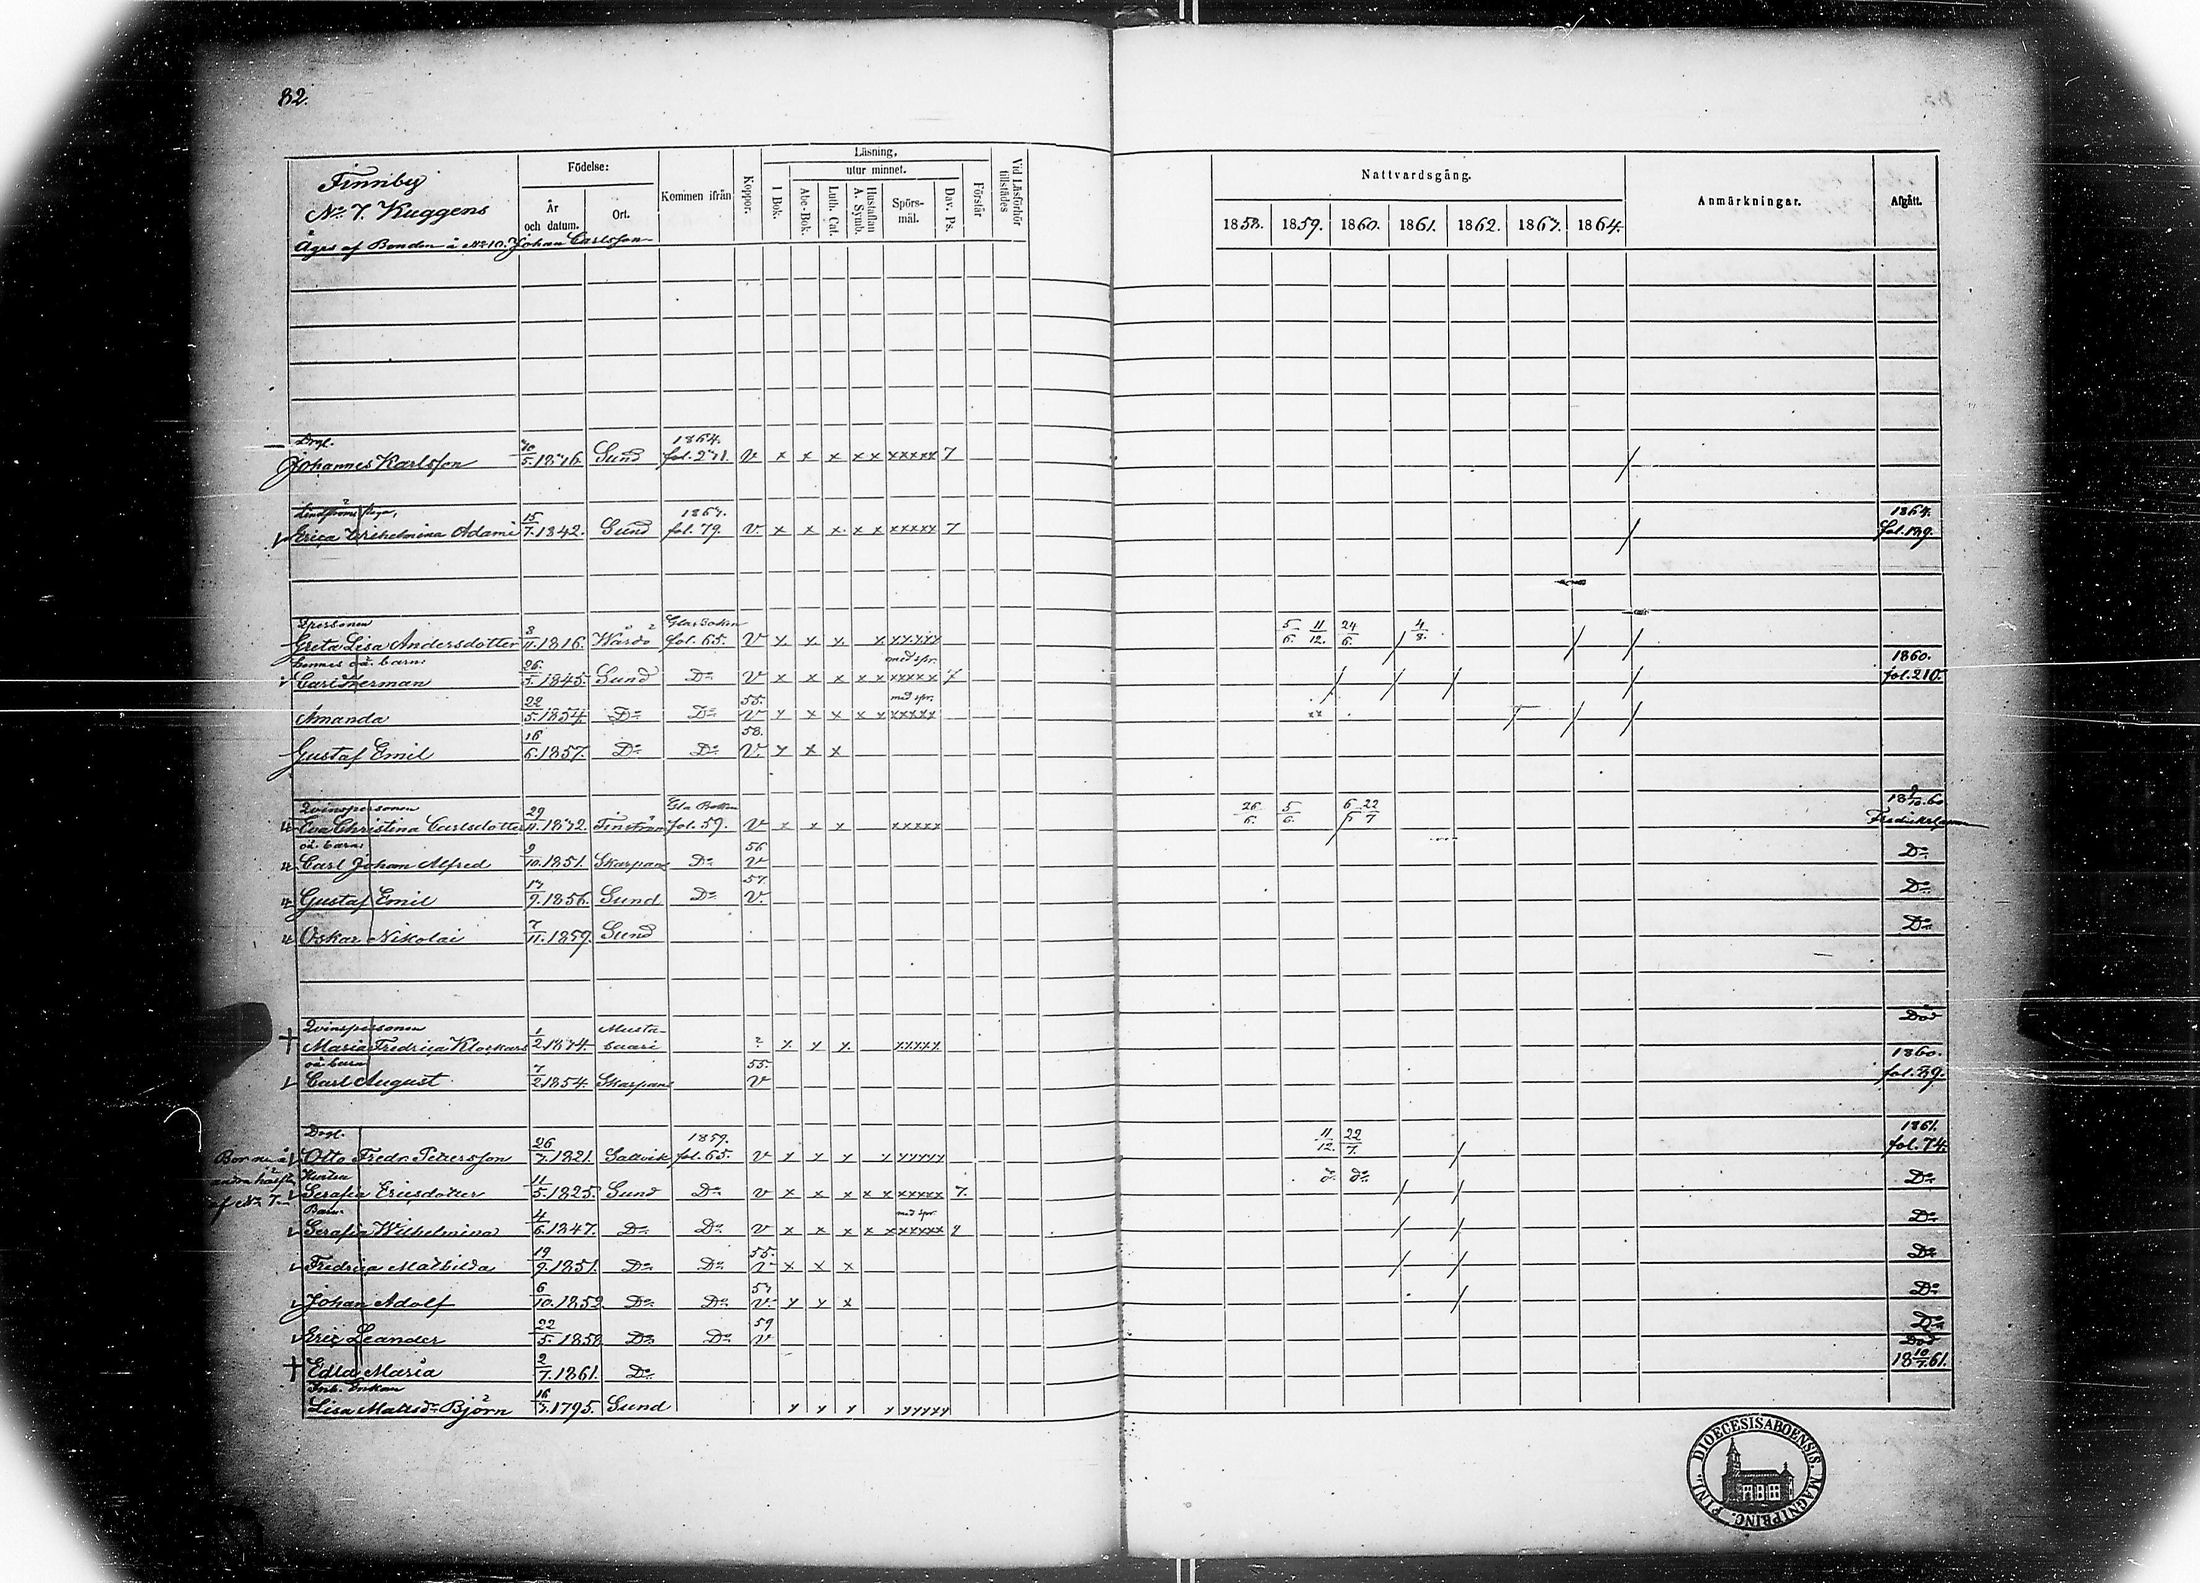 82.
Finnby
No 7. Kuggens
Äges af Bonden å No 10. Johan Carlsson
Födelse:
År och datum.
Ort.
Kommen ifrån
Koppor.
Läsning,
utur minnet.
I Bok.
Abc-Bok.
Luth. Cat.
Hustaflan A. Symb.
Spörs-mål.
Dav. Ps.
Förstår
Vid Läsförhör tillstädes
Nattvardsgång.
1858. 1859. 1860. 1861. 1862. 1863. 1864.
Anmärkningar.
Afgått.
Drgl. 1864.
Johannes Karlsson Sund v x x x x x xxxxx 7
15 1863. 1864.
Erica Wilhelmina Adami 7. 1842. Sund fol. 79. v. x x x x x xxxxx 7
3 Gla Boken 5 11 24 4
Greta Lisa Andersdotter 11. 1816. Wårdö fol. 65. v x x x x xxxxx 6. 12. 6. 8.
hennes oä. barn: 26. med spr. 1860.
5. 1845. Sund Do v x x x x x xxxxx 7 fol. 210.
22 55. med spr.
Amanda 5. 1854. Do Do v x x x x x xxxxx
16 58.
Gustaf Emil 6. 1857. Do Do v. x x x
Qvinspersonen 29 Gla Boken 26 5 6 22
Eva Christina Carlsdotter fol. 59. v x x x xxxxx 6. 6. 7
oä. barn: 9 56
Carl Johan Alfred 10. 1851. Skarpans Do v Do
13 57.
Gustaf Emil 9. 1856. Sund Do v. Do
7
Oskar Nikolai 11. 1859. Sund Do
Qvinspersonen 1 Musta- Död
Maria Fredrica Klockars saari ? x x x xxxxx
oä barn 7 55. 1860.
Carl August 2. 1854. Skarpans v fol. 89.
Drgl. 26 1859. 11 22 1861.
Otto Fredr. Pettersson 7. 1821. Saltvik fol. 65. v x x x x xxxxx 12. 7. fol. 74.
Bor nu å
andra hälften
af No 7.
Hustru 11
Serafia Ericsdotter 5. 1825. Sund Do v x x x x x xxxxx 7. Do Do
Barn: 4 med spr
Serafia Wilhelmina 6. 1847. Do Do v x x x x x xxxxx Do
19 55.
Fredrica Mathilda 9. 1851. Do Do v x x x Do
6
Johan Adolf 10. 1852 Do Do v. x x x Do
22 59
Eric Leander 5. 1858 Do Do v Do
2 Död
Edla Maria 7. 1861. Do 18 10/7 61.
Inh. Enkan 16
Lisa Matsdr Björn 1795. Sund x x x x xxxxx
DIOECESIS ABOENSIS. MAGNI PRINC. FINL.